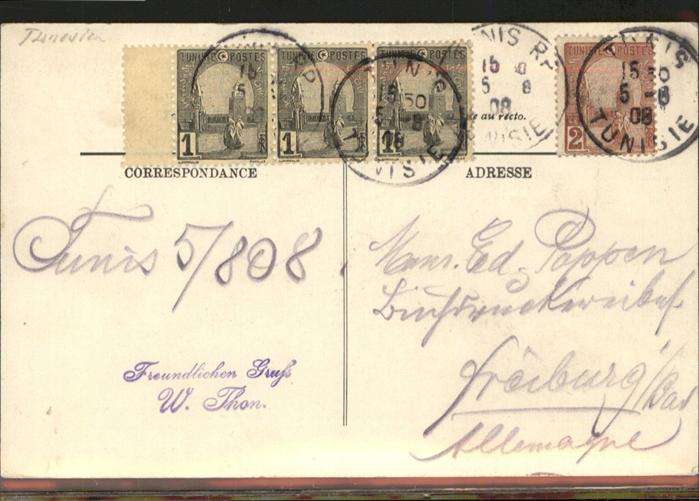 Tunesien
TUNISIE POSTES
1
TUNISIE POSTES
1
TUNISIE POSTES
1
TUNIS
15 50
5 -8
08
TUNISIE
TUNIS R.P
15
5 8
08
TUNISIE
POSTES
2
TUNIS
15 30
5 -8
08
TUNISIE
au recto.
CORRESPONDANCE
ADRESSE
Tunis 5/8 08.
Freundlichen Gruß
W. Thon.
Mons. Ed. Poppen
Buchdruckereibes.
Freiburg i/Bad
Allemagne